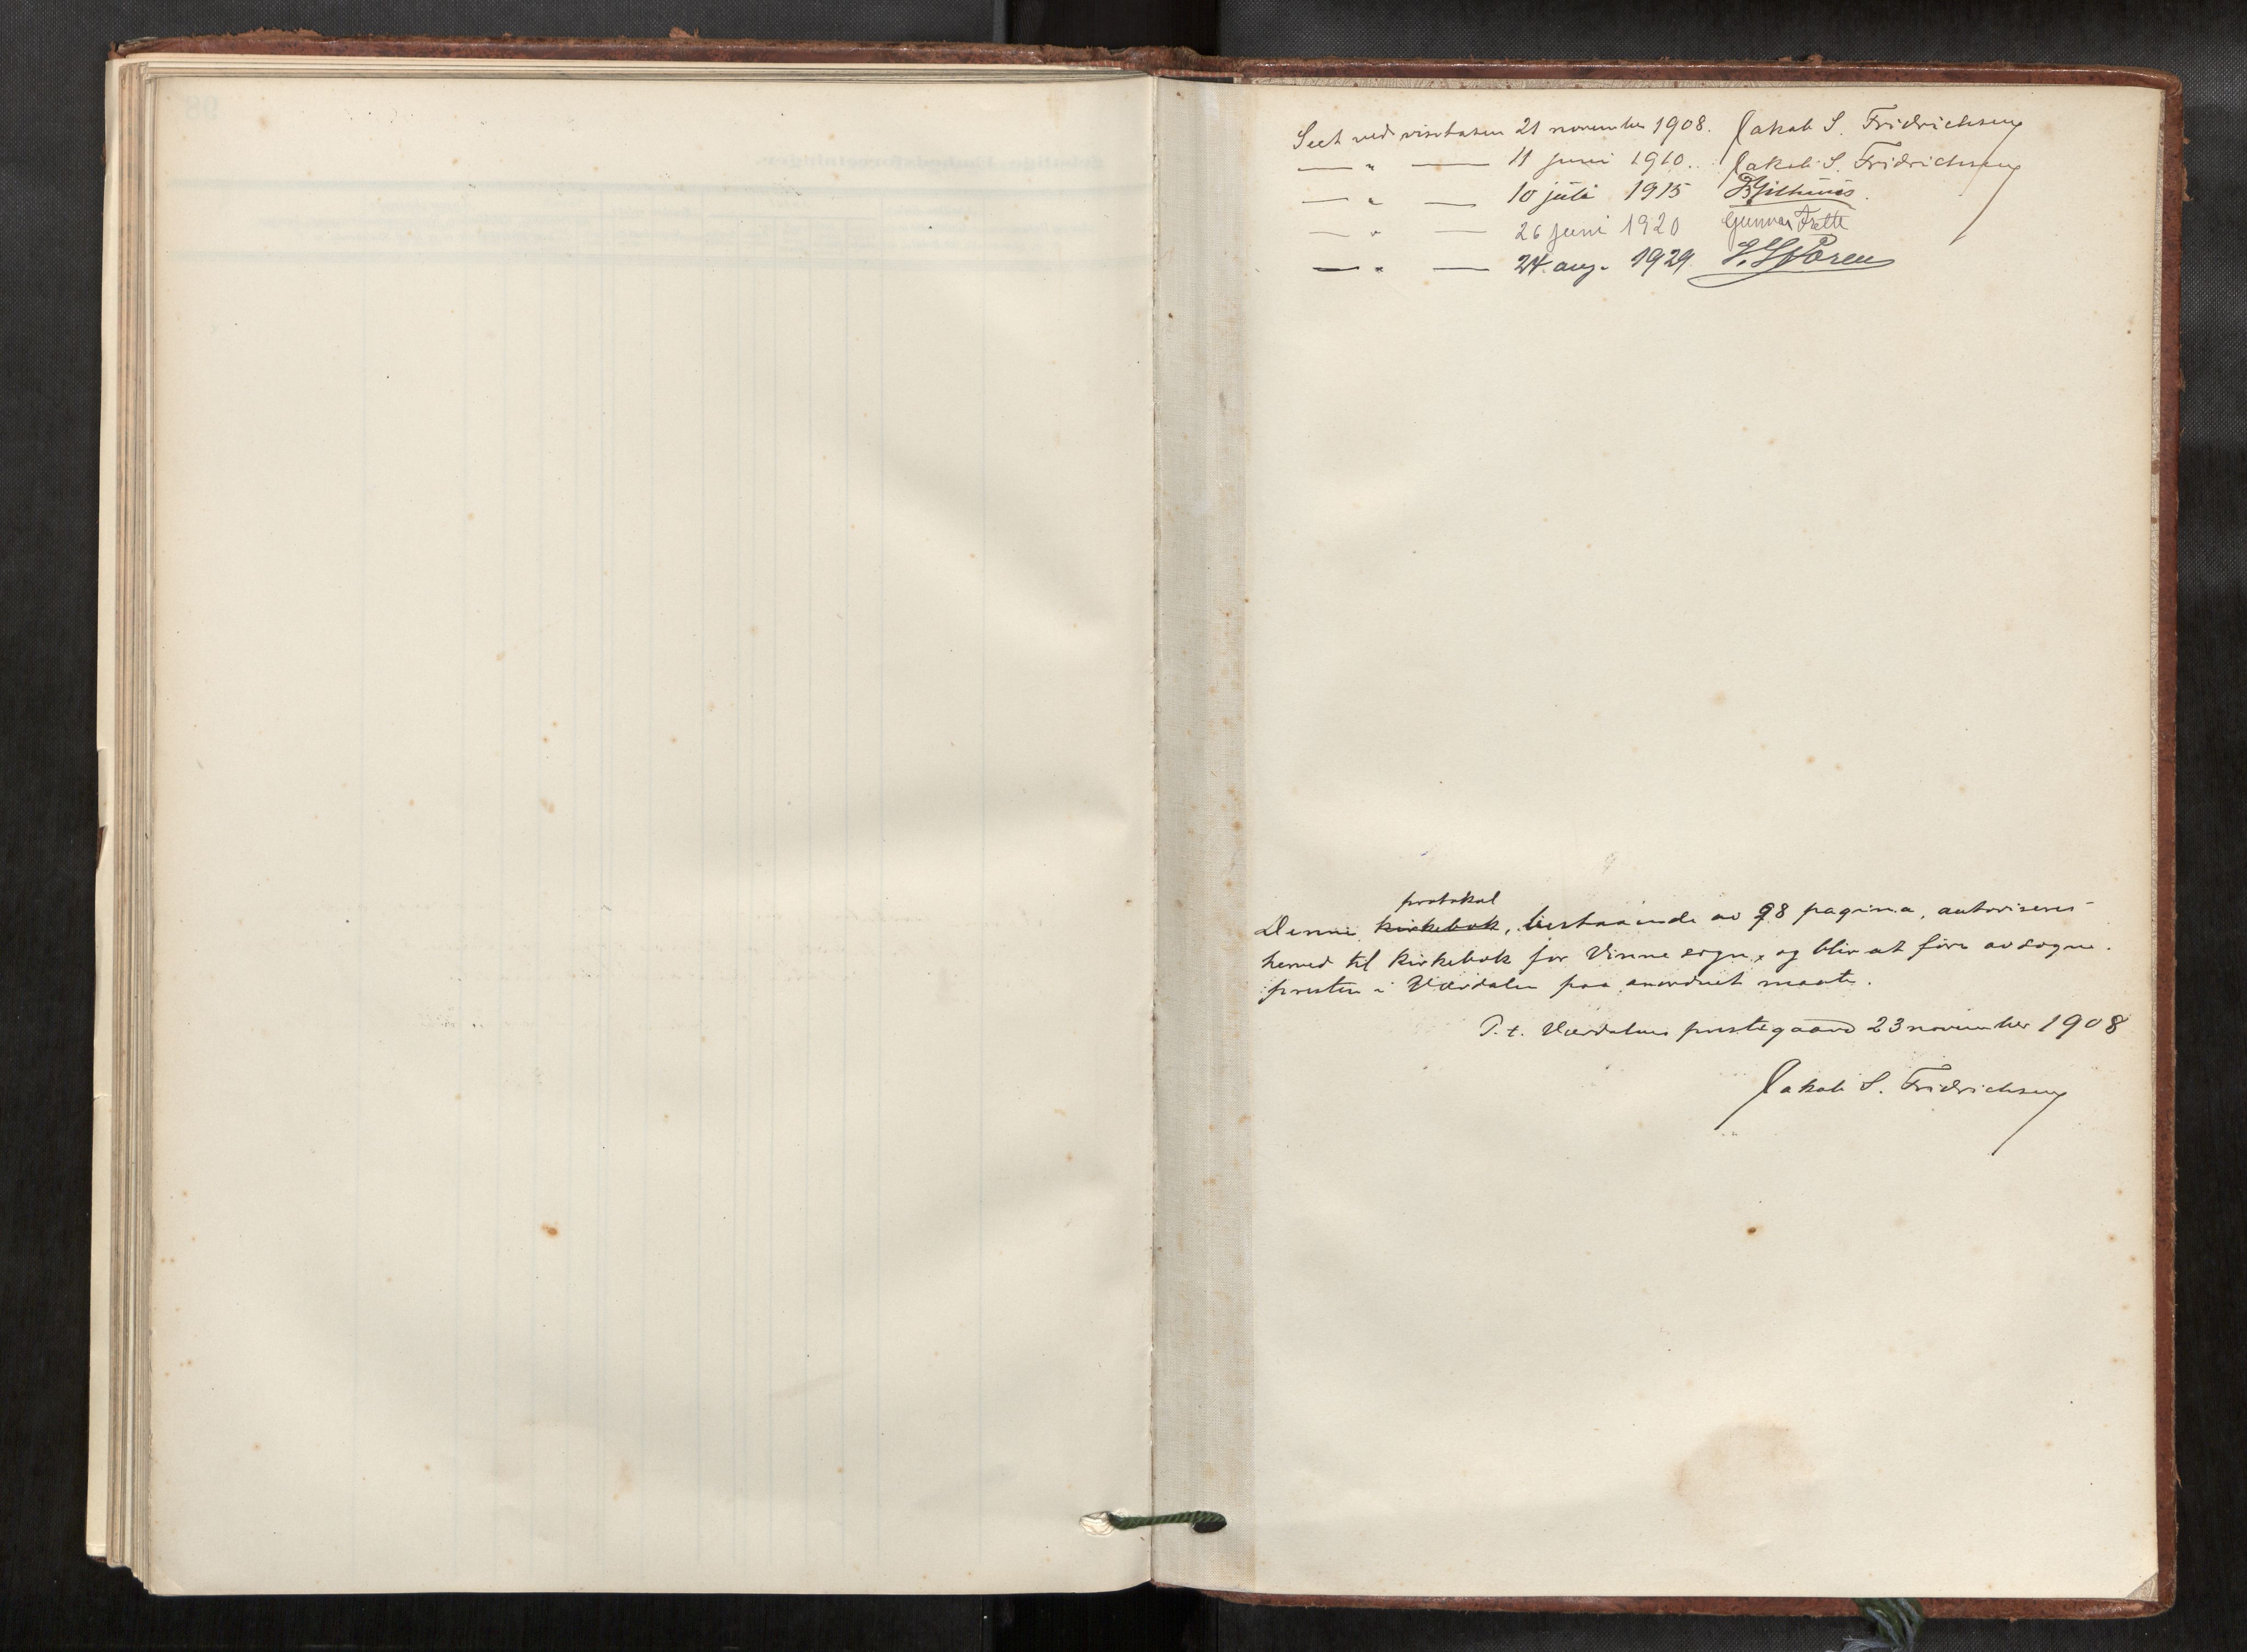 Seet ved visitasen 21 november 1908. Jakob S. Fridrichsen
— " — 11 juni 1910. Jakob S. Fridrichsen
— " — 10 juli 1915
— " — 26 juni 1920 Gunvar Fatti
— " — 24. aug. 1929 Støren
protokol
Denne kirkebok, bestaaende av 98 pagina, autoriseres
herved til kirkebok for Vinne sogn, og blir at føre av sogne-
presten i Værdalen paa anordnet maate.
P. t. Værdalens prestegaard 23 november 1908
Jakob S. Fridrichsen